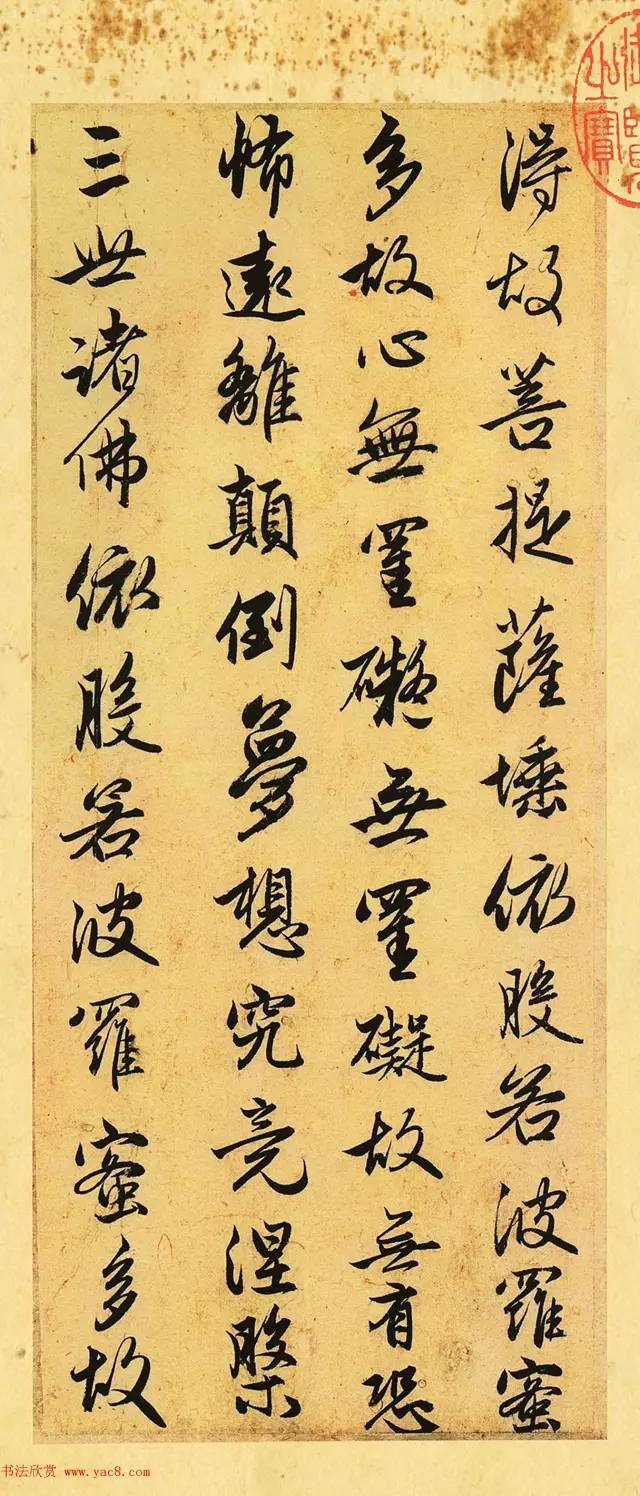 得故菩提薩埵依般若波羅蜜
多故心無罣礙無罣礙故無有恐
怖遠離顛倒夢想究竟涅槃
三世諸佛依般若波羅蜜多故
之寶
书法欣赏 www.yac8.com